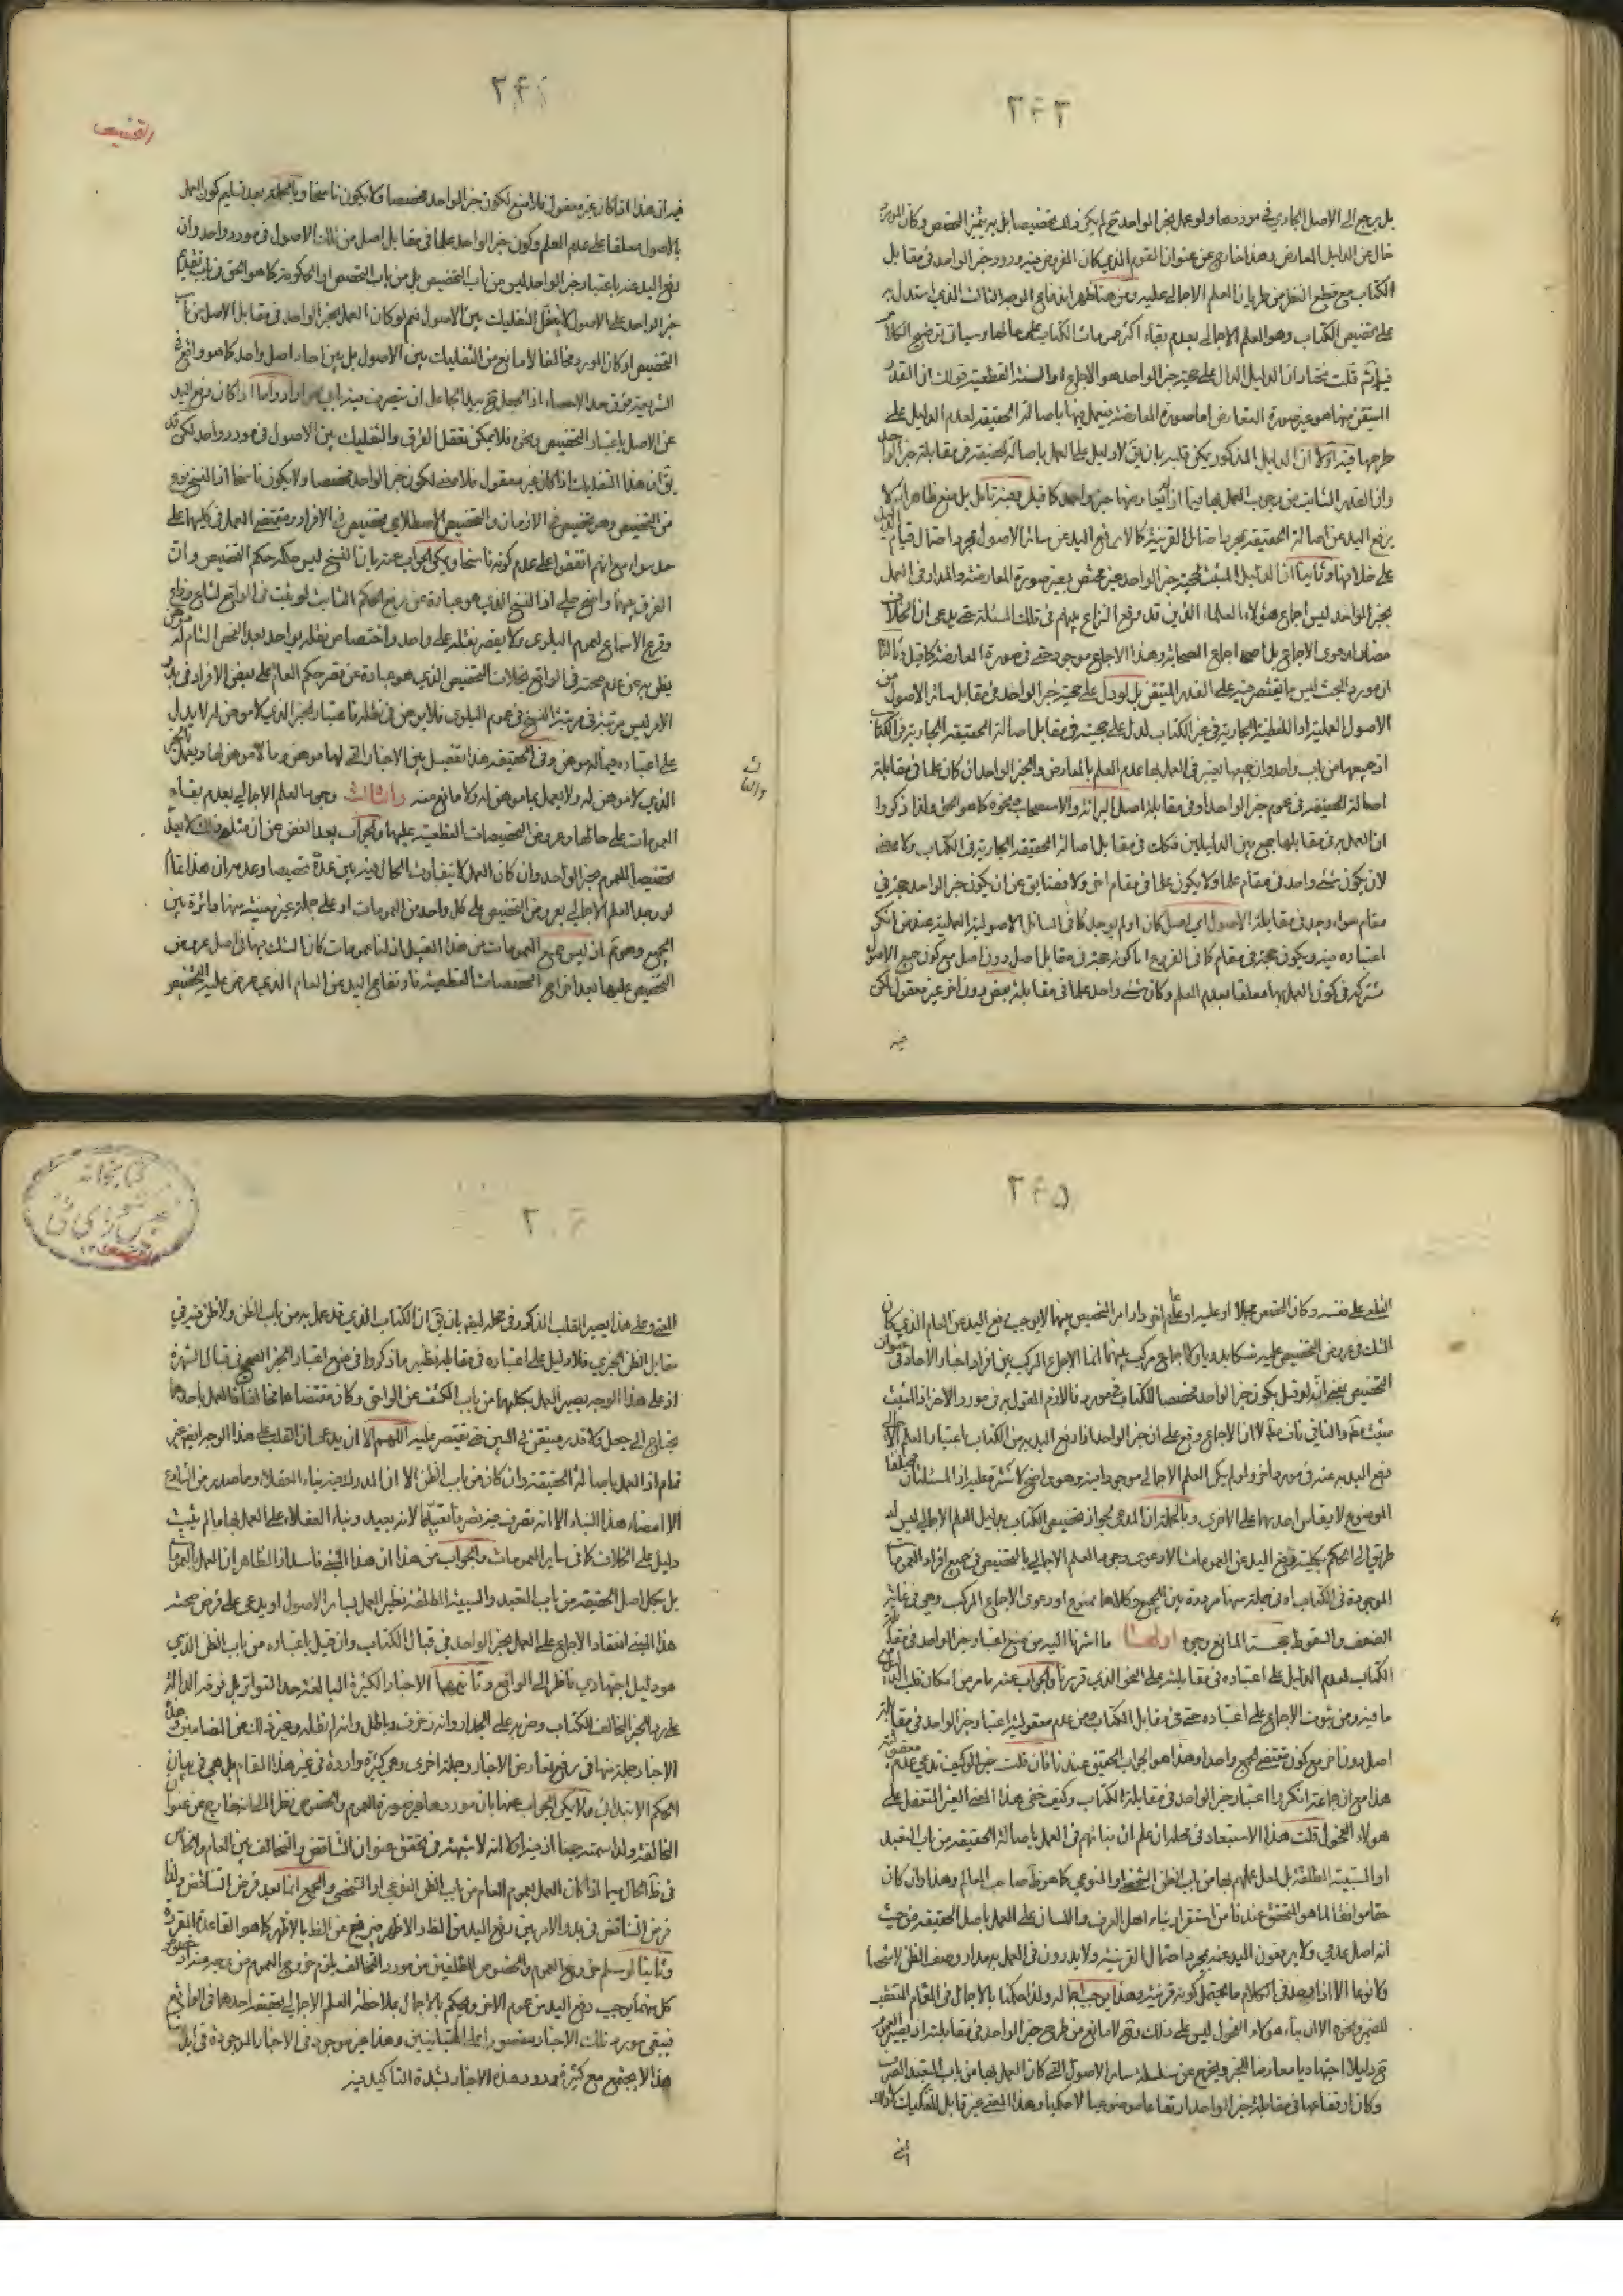 ٣۴٣
بل يرجع الى الاصل الجاري في موردها ولو عمل بخبر الواحد لم يكن ذلك تخصيصا بل
خال عن الدليل المعارض وهذا خارج عن عنوان القوم الذي كان المفروض فيه ورود خبر الواحد في مقابل
الكتاب مع قطع النظر عن طريان العلم الاجمالي عليه ومن هنا ظهر اندفاع الوجه الثالث الذي استدل به
على تخصيص الكتاب وهو العلم الاجمالي بعدم بقاء اكثر عمومات الكتاب على حالها وسياتي توضيح الكلام
فيه ثم قلت نختار ان الدليل الدال على حجية خبر الواحد هو الاجماع او السنة القطعية قولك ان القدر
المتيقن منها هو غير صورة التعارض اما صورة المعارضة فيعمل فيها باصالة الحقيقة لعدم الدليل على
طرحها فيه اولا ان الدليل المذكور يمكن قلبه بان يق لا دليل على العمل باصالة الحقيقة في مقابلة خبر الواحد
وان القدر الثابت من وجوب العمل بها
يرفع اليد عن اصالة الحقيقة بمجرد احتمال القرينة كالا يرفع اليد عن سائر الاصول بمجرد احتمال قيام الدليل
على خلافها وثانيا ان الدليل المثبت لحجية خبر الواحد غير مختص بغير صورة المعارضة والمدار في العمل
بخبر الواحد ليس اجماع هؤلاء العلماء الذين قد وقع النزاع بينهم في تلك المسئلة حتى يدعى ان الخلاف
مضاد لدعوى الاجماع بل اجماع الصحابة وهذا الاجماع موجود حتى في صورة المعارضة كما قيل وثالثا
ان مورد البحث ليس ما يقتصر فيه على القدر المتيقن بل لو دل على حجية خبر الواحد في مقابل سائر الاصول من
الاصول العملية او اللفظية الجارية في غير الكتاب لدل على حجيته في مقابل اصالة الحقيقة الجارية في الكتاب
اذ جميعها من باب واحد وان جميعها يعتبر في العمل بها عدم العلم بالمعارض والخبر الواحد ان كان علما في مقابلة
اصالة الحقيقة في عموم خبر الواحد او في مقابلة اصل البرائة والاستصحاب ونحوه كما هو الحق ولذا ذكروا
ان العمل به في مقابلها جمع بين الدليلين فكك في مقابل اصالة الحقيقة الجارية في الكتاب ولا معنى
لان يكون شئ واحد في مقام علما ولا يكون علما في مقام اخر ولا مضايق عن ان يكون خبر الواحد حجة في
مقام سواء وجد في مقابلة الاصول اي اصل كان او لم يوجد كما في المسائل الاصولية العملية عند من انكر
اعتباره فيه ويكون حجة في مقام كما في الفروع اما كونه حجة في مقابل اصل دون اصل مع كون جميع الاصول
مشتركة في كون العمل بها معلقا بعدم العلم وكان شئ واحد علما في مقابلة بعض دون اخر غير معقول لكن
فيه
التخصيص
فيه ان هذا اذا كان غير معقول فلا منع لكون خبر الواحد مخصصا ولا يكون ناسخا وبالجملة بعد تسليم كون العمل
بالاصول معلقا على عدم العلم وكون خبر الواحد علما في مقابل اصل من تلك الاصول في مورد واحد وان
رفع اليد عنه باعتبار خبر الواحد ليس من باب التخصيص بل من باب التخصص او الحكومة كما هو الحق في باب تقديم
خبر الواحد على الاصول لا يعقل التفكيك بين الاصول نعم لو كان العمل بخبر الواحد في مقابل الاصل من باب
التخصيص او كان المورد مخالفا لا مانع من التفكيك بين الاصول بل بين احاد اصل واحد كما هو واقع في
الشريعة فوق حد الاحصاء اذ العمل ح بيد الجاعل ان يتصرف فيه اي نحو اراد واما اذا كان رفع اليد
عن الاصل باعتبار التخصيص ونحوه فلا يمكن تعقل الفرق والتفكيك بين الاصول في مورد واحد لكن قد
يق ان هذا التفكيك اذا كان غير معقول فلا معنى لكون خبر الواحد مخصصا ولا يكون ناسخا اذ النسخ نوع
من التخصيص وهو تخصيص في الازمان والتخصيص الاصطلاحي تخصيص في الافراد ومقتضى العمل في كليهما على
حد سواء مع انهم اتفقوا على عدم كونه ناسخا ويمكن الجواب عنه بان النسخ ليس حكمه حكم التخصيص وان
الفرق بينهما واضح جلي اذ النسخ الذي هو عبارة عن رفع الحكم الثابت لو ثبت في الواقع لشاع وذاع
وقرع الاسماع لعموم البلوى ولا يقصر نقله على واحد واختصاص نقله بواحد بعد الفحص التام موهن له
يظن به عن عدم صحته في الواقع بخلاف التخصيص الذي هو عبارة عن قصر حكم العام على بعض الافراد في بدو
الامر ليس مرتبته في مرتبة النسخ في عموم البلوى فلا يوهن في نقله فاعتبار الخبر الذي لا موهن له لا يدل
على اعتباره فيما له موهن وفي الحقيقة هذا تفصيل بين الاخبار التي لها موهن وما لا موهن لها ويعمل بالخبر
الذي لا موهن له ولا يعمل بما موهن له ولا مانع منه والثالث وجود العلم الاجمالي بعدم بقاء
العمومات على حالها وعروض التخصيصات القطعية عليها والجواب بعد الغض عن ان مثله
تخصيصا للعموم بخبر الواحد وان كان العمل لا يتفاوت الحال فيه بين عده تخصيصا وعدمه ان هذا
لو وجد العلم الاجمالي بعروض التخصيص على كل واحد من العمومات او على جملة غير معينة منها دائرة بين
الجميع وهو ثم اذ ليس جميع العمومات من هذا القبيل اذ لنا عمومات كان الشك بها في اصل عروض
التخصيص عليها بعد اخراج التخصيصات القطعية فارتفاع اليد من العام الذي عرض عليه التخصيص
٣۴۵
القطع على نفسه وكان المخصص مجملا
الشك في عروض التخصيص عليه تمسكا
التخصيص بمعنى انه لو قيل بكون خبر الواحد مخصصا للكتاب في مورد
رفع اليد به عنه في مورد اخر ولو لم يكن العلم الاجمالي موجودا فيه وهو واضح
الموضوع لا يقاس احديهما على الاخرى وبالجملة ان المدعي بجواز تخصيص الكتاب بدليل العلم الاجمالي ليس له
طريق الى الحكم بكلية رفع اليد عن العمومات الا دعوى وجود العلم الاجمالي بالتخصيص في جميع افراد العمومات
الموجودة في الكتاب او في جملة منها مرددة بين الجميع وكلاهما ممنوع او دعوى الاجماع المركب وهي في غاية
الضعف والسقوط حجة المانع وجوه اولها ما اشرنا اليه من منع اعتبار خبر الواحد في مقابل
الكتاب لعدم الدليل على اعتباره في مقابلته على النحو الذي قررنا والجواب عنه ما مر من امكان قلب الدليل
ما فيه ومن ثبوت الاجماع على اعتباره حتى في مقابل الكتاب ومن عدم معقولية اعتبار خبر الواحد في مقابلة
اصل دون اخر مع كون مقتضى الجميع واحدا وهذا هو الجواب الحقيق عندنا فان قلت كيف تدعي عدم معقولية
هذا مع ان جماعة انكروا اعتبار خبر الواحد في مقابلة الكتاب وكيف خفي هذا المعنى الغير المتعقل على
هؤلاء الفحول قلت هذا الاستبعاد في محله ان علم ان بنائهم في العمل باصالة الحقيقة من باب التعبد
او السببية المطلقة بل لعل عملهم بها من باب الظن الشخصي او النوعي كما هو ظ صاحب المعالم وهذا وان كان
حقا موافقا لما هو المتحقق عندنا من استقرار بناء اهل العرف واللسان على العمل باصل الحقيقة من حيث
انه اصل عدمي ولا يرفعون اليد عنه بمجرد احتمال القرينة ولا يدورون في العمل به مدار وصف الظن
الا اذا وجد في الكلام ما يحتمل كونه قرينة وهذا يوجب اجماله ولذا حكمنا بالاجمال في العام المتعقب
للضمير ونحوه الا ان بناء هؤلاء الفحول ليس على ذلك وح لا مانع من طرح خبر الواحد في مقابلته اذ يصير العموم
ح دليلا اجتهاديا معارضا للخبر ويخرج عن سلسلة سائر الاصول التي كان العمل بها من باب التعبد الصرف
وكان ارتفاعها في مقابلة خبر الواحد ارتفاعا موضوعيا لا حكميا وهذا المعنى غير قابل للتفكيك
المعنى
المعنى وعلى هذا يصير القلب المذكور في محله ايضا بان يق ان الكتاب الذي قد عمل به من باب الظن ولا ظن فيه في
مقابل الظن الخبري فلا دليل على اعتباره في مقابله نظير ما ذكروا في منع اعتبار الخبر الصحيح في قبال الشهرة
اذ على هذا الوجه يصير العمل بكليهما من باب الكشف عن الواقع وكان مقتضاهما مخالفا فالعمل باحدهما
يحتاج الى جعل ولا قدر متيقن في البين حتى يقتصر عليه اللهم الا ان يدعى ان القلب على هذا الوجه ايضا غير
تمام اذ العمل باصالة الحقيقة وان كان من باب الظن الا ان المدرك فيه بناء العقلاء وما صدر من الشارع
الا امضاء هذا البناء الا انه تصرف فيه تصرفا تعبديا لانه بعيد وبناء العقلاء على العمل بها ما لم يثبت
دليل على الخلاف كما في سائر العمومات والجواب عن هذا ان هذا المبنى فاسد اذ الظاهر ان العمل بالعمومات
بل بكل اصل الحقيقة من باب التعبد والسببية المطلقة نظير العمل بسائر الاصول او يدعى على فرض صحة
هذا المبنى انعقاد الاجماع على العمل بخبر الواحد في قبال الكتاب وان قيل باعتباره من باب الظن الذي
هو دليل اجتهادي ناظر الى الواقع وثانيهما الاخبار الكثيرة البالغة حد التواتر بل فوقه الدالة
على رد الخبر المخالف للكتاب وضربه على الجدار وانه زخرف وباطل وانه لم نقله وغير ذلك من المضامين
الاخبار جملة منها في رفع تعارض الاخبار وجملة اخرى وهي كثيرة واردة في غير هذا المقام بل هي في بيان
الحكم الابتدائي ولا يمكن الجواب عنها بان موردها غير صورة العموم والخصوص نظرا الى انها خارج عن عنوان
المخالفة ولذا سميته جمعا اذ فيه اولا انه لا شبهة في تحقق عنوان التناقض والتخالف بين العام والخاص
في ظ الحال سيما اذا كان العمل بعموم العام من باب الظن النوعي او الشخصي والجمع انما بعد فرض التناقض ولذا
فرض التناقض في بدو الامر بين رفع اليد من الظ والاظهر فيرفع عن الظ بالاظهر كما هو القاعدة المقررة
وثانيا لو سلم خروج العموم والخصوص المطلقين من مورد التخالف يلزم خروج العموم من وجه منه اذ خصوص
كل منهما يوجب رفع اليد من عموم الاخر ويحكم بالاجمال بملاحظة العلم الاجمالي بتحقق احدهما في الواقع
فيبقى مورد تلك الاخبار مقصورا على المتباينين وهذا غير موجود في الاخبار الموجودة في ايدينا
هذا لا يجتمع مع كثرة ورود هذه الاخبار لشدة التاكيد فيه